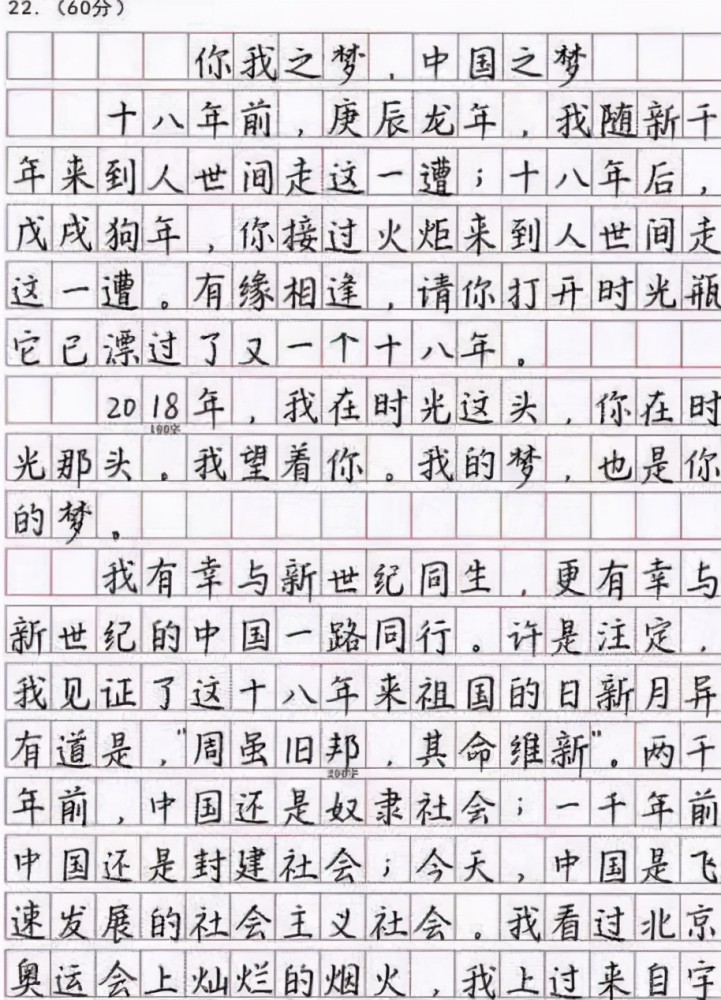 22.（60分）
你我之梦，中国之梦
十八年前，庚辰龙年，我随新千
年来到人世间走这一遭；十八年后，
戊戌狗年，你接过火炬来到人世间走
这一遭。有缘相逢，请你打开时光瓶
它已漂过了又一个十八年。
2018年，我在时光这头，你在时
100字
光那头。我望着你。我的梦，也是你
的梦。
我有幸与新世纪同生，更有幸与
新世纪的中国一路同行。许是注定，
我见证了这十八年来祖国的日新月异
有道是，"周虽旧邦，其命维新"。两千
200字
年前，中国还是奴隶社会；一千年前
中国还是封建社会；今天，中国是飞
速发展的社会主义社会。我看过北京
奥运会上灿烂的烟火，我上过来自宇